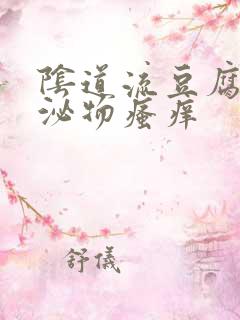 陰道流豆腐
泌物瘙痒
舒儀